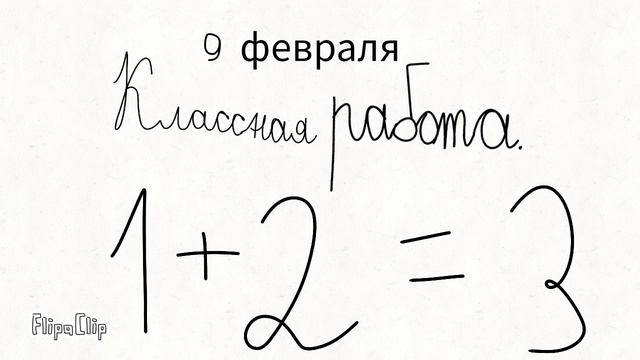 9 февраля
Классная работа.
1 + 2 = 3
FlipaClip